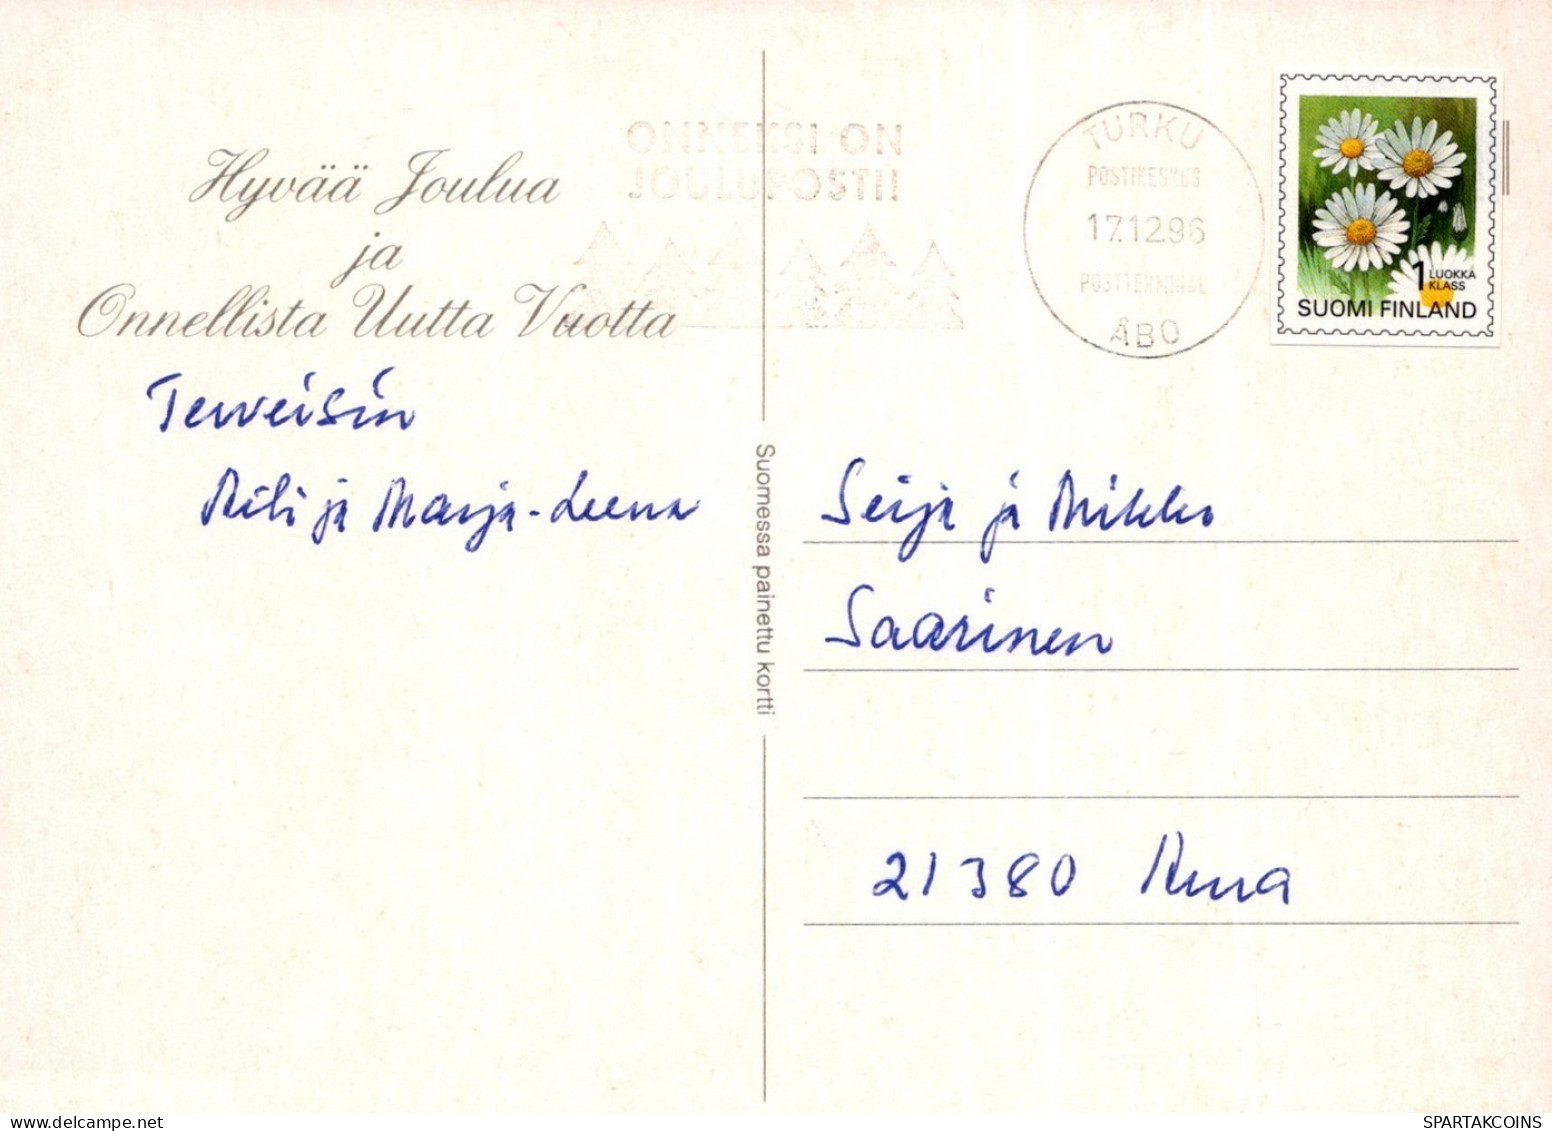 Hyvää Joulua
ja
Onnellista Uutta Vuotta
Terveisin
Mili ja Marja-Leena
Suomessa painettu kortti
ONNEKSI ON
JOULUPOSTI!
TURKU
POSTIKESKUS
17.12.96
POSTTERMINAL
ÅBO
1 LUOKKA
KLASS
SUOMI FINLAND
Seija ja Mikko
Saarinen
21380 Aura
SPARTAKCOINS